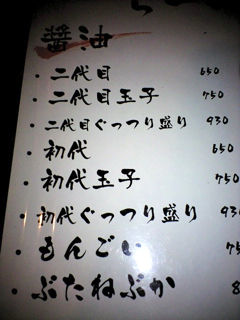 醤油
・二代目 650
・二代目玉子 750
・二代目ぐっつり盛り 930
・初代 650
・初代玉子 750
・初代ぐっつり盛り 930
・もんごい
・ぶたねぶか